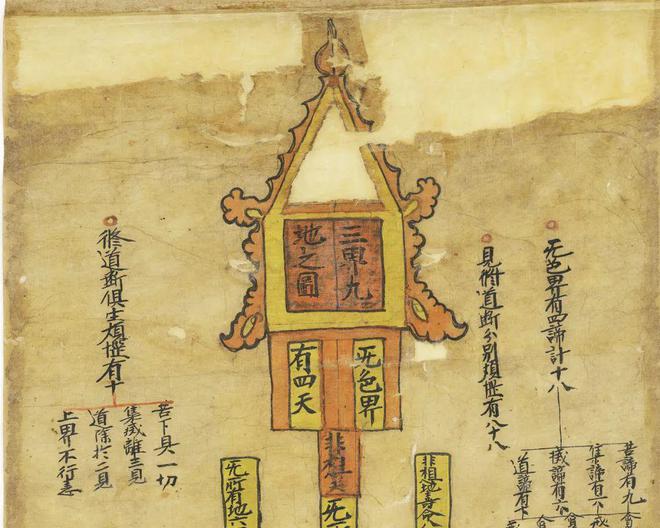 三界九
地之圖
无色界
有四天
无色界有四諦計十八
見脩道断分别煩惱有八十八
苦諦有九
滅諦有六
道諦有
非想地壽命八
无所有地六
修道断俱生煩惱有十
苦下具一切
集滅離三見
道除於二見
上界不行恚